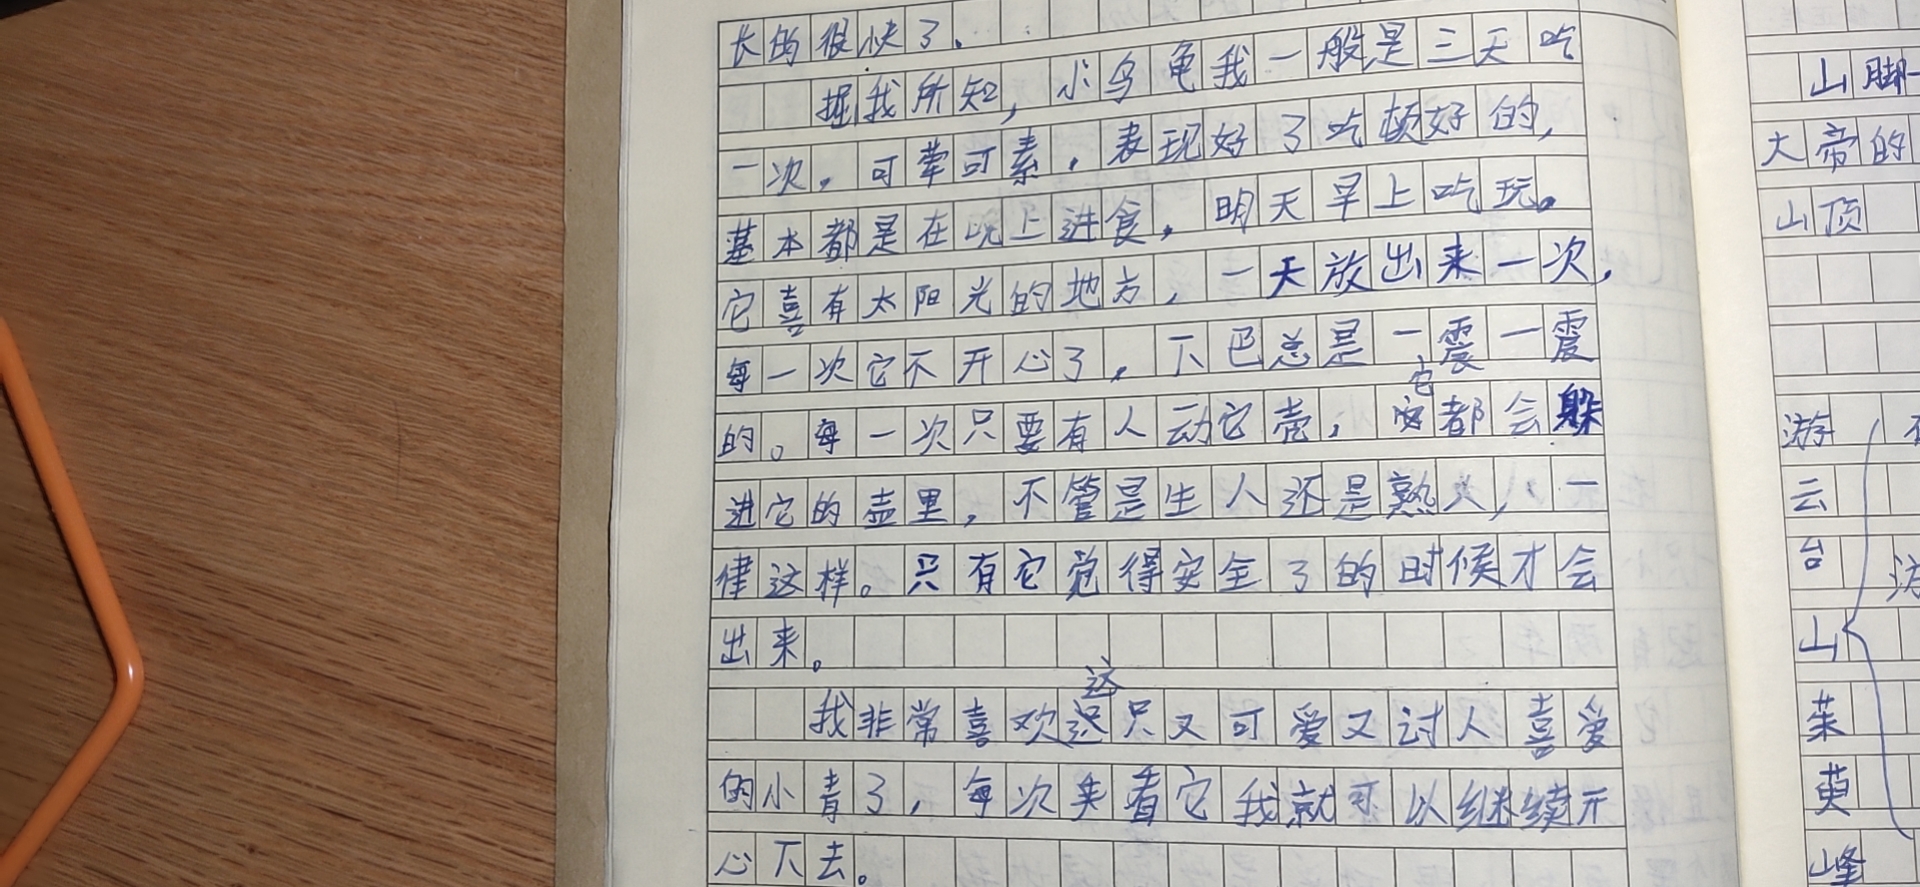 长的很快了。
据我所知,小乌龟我一般是三天吃
一次,可荤可素,表现好了吃顿好的,
基本都是在晚上进食,明天早上吃玩。
它喜有太阳光的地方,一天放出来一次,
每一次它不开心了,下巴总是一震一震
的。每一次只要有人动它壳,它都会躲
进它的壶里,不管是生人还是熟人,一
律这样。只有它觉得安全了的时候才会
出来。
我非常喜欢这只又可爱又讨人喜爱
的小青了,每次来看它我就可以继续开
心下去。
山脚
大帝的
山顶
游
云
台
山
茱
萸
峰